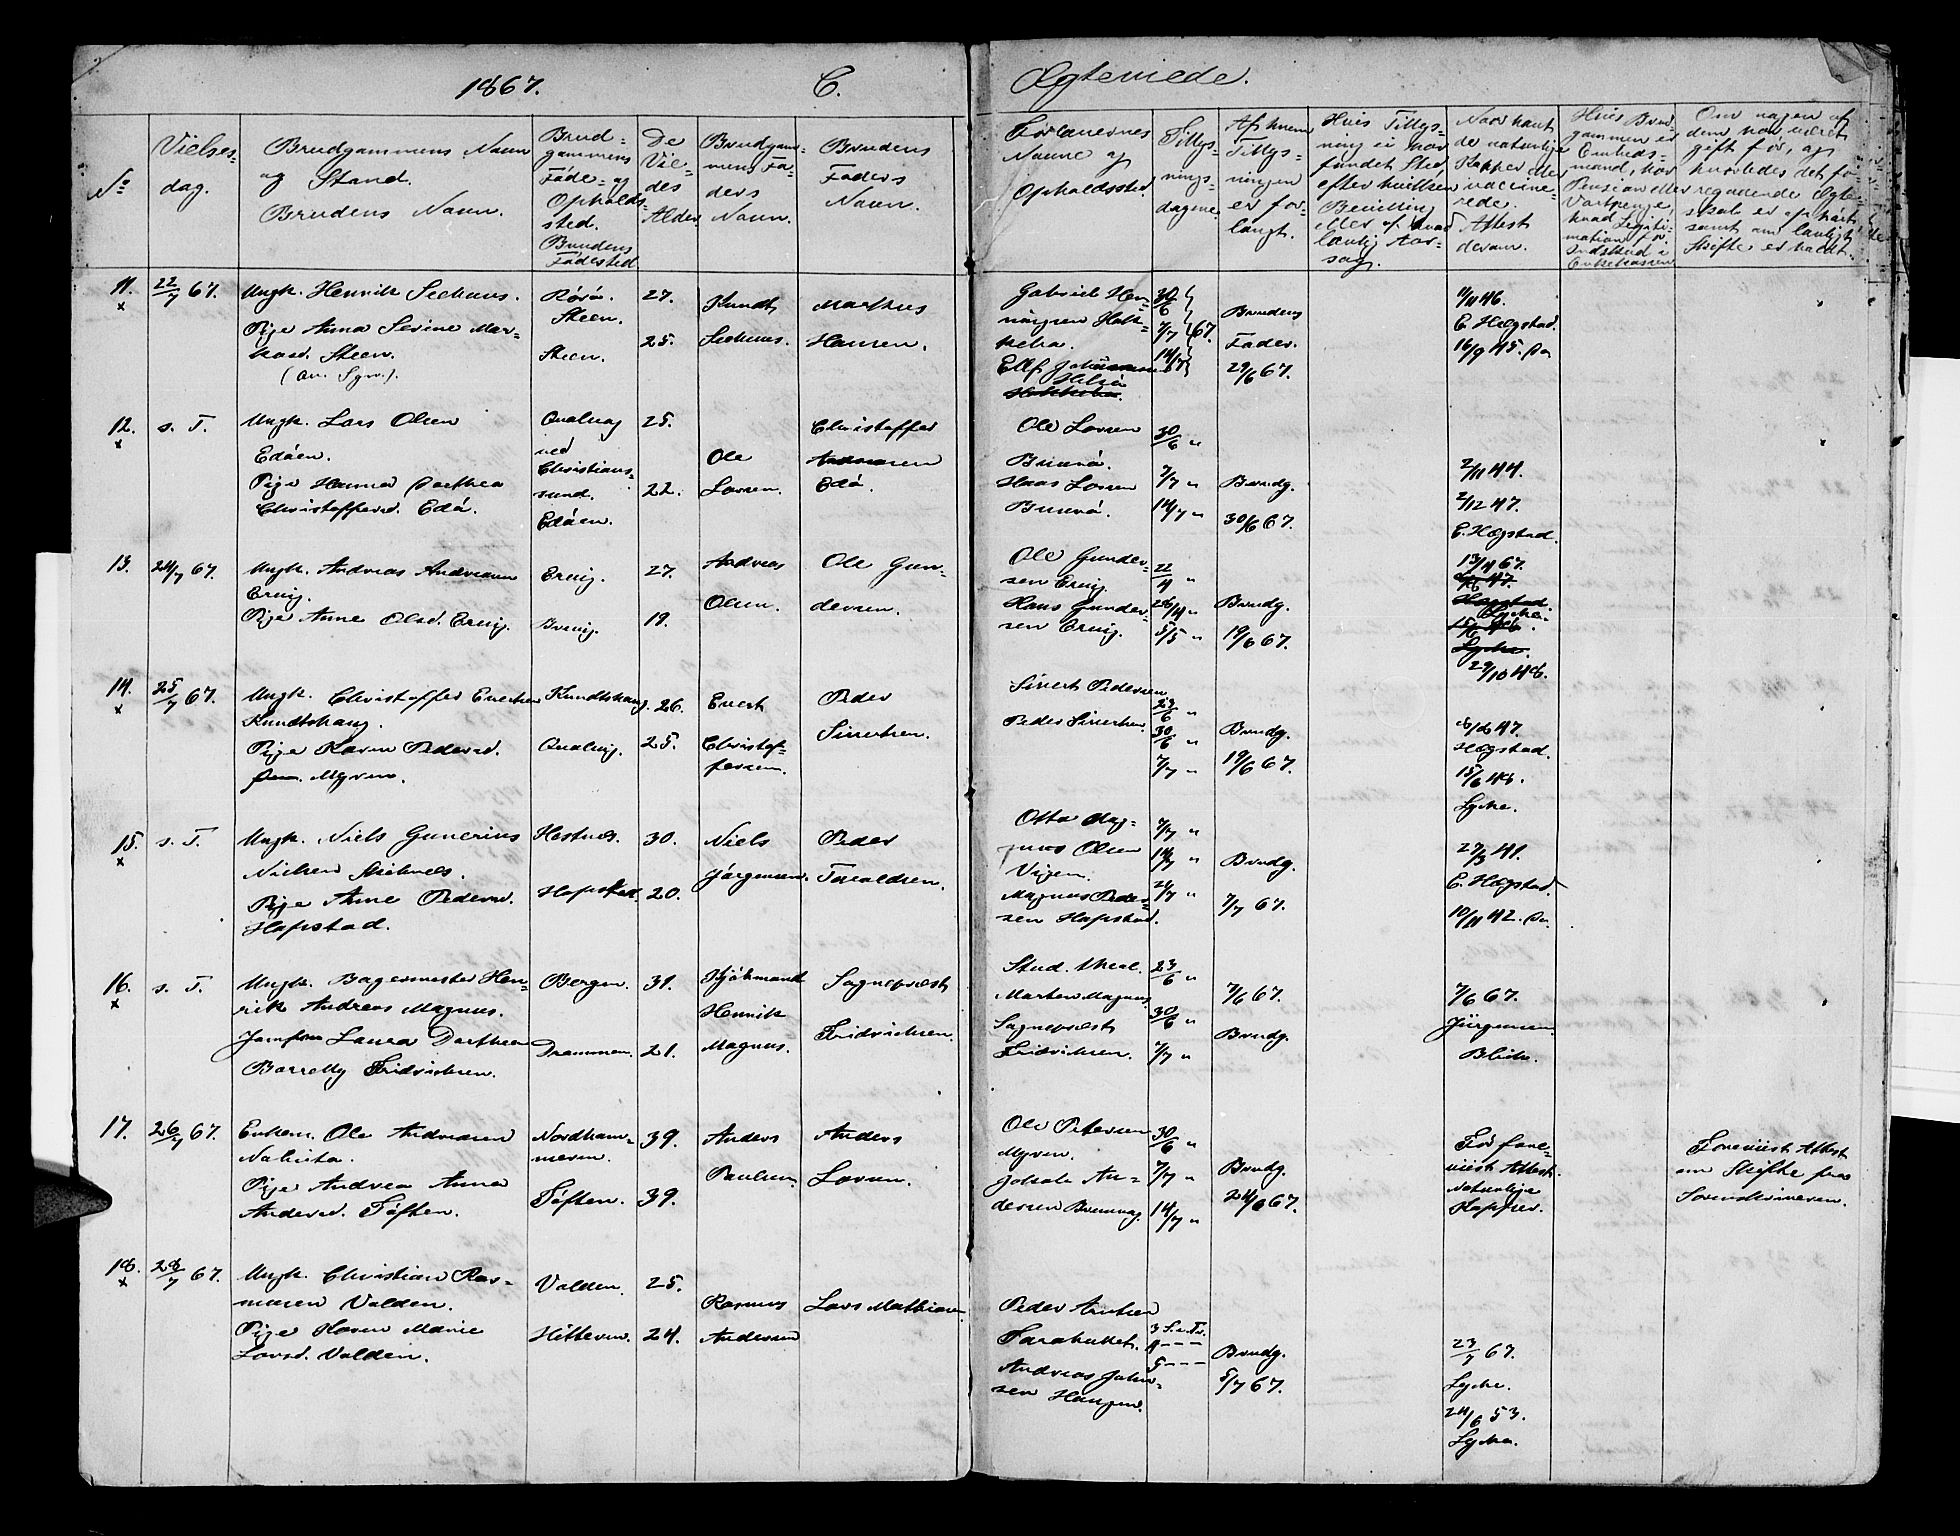 1867. C. Ægteviede.
No
Vielses-
dag.
Brudgommens Navn
og Stand.
Brudens Navn.
Brud-
gommens
Føde- og
Opholds-
sted.
Brudens
Fødested
De
Vie-
des
Alder.
Brudgom-
mens Fa-
ders
Navn.
Brudens
Faders
Navn.
Forlovernes
Navne og
Opholdssted.
Tillys-
nings-
dagene.
Af hvem
Tillys-
ningen
er for-
langt.
Hvis Tillys-
ning ei har
fundet Sted
efter hvilken
Bevilling
eller af hvad
lovlig Aar-
sag.
Naar havt
de naturlige
Kopper eller
vaccine-
rede.
Attest
derom.
Hvis Brud-
gommen er
Enkeds-
mand, har
Pension eller
Vartpenge,
hvad Legiti-
mation for
Indskud i
Enkekassen
Om nogen af
dem har været
gift før, og
hvorledes det fo-
regaaende Ægte-
skab er ophørt
samt om lovligt
Skifte er holdt.
11. 22/7 67.
Ungk. Henrik Seehuus.
Pige Anna Sevine Mar-
kusd. Steen.
Steen.
Steen.
27.
25.
Knudt
Seehuus.
Marthus
Hansen.
Gabriel Hen-
ningsen Hak-
keba.
Ell. Johannesen
30/6
7/7 67.
14/7
Brudens
Fader.
29/6 67.
11/11 46.
E. Hægstad.
16/9 45. Do
12. s. T.
Ungk. Lars Olsen
Edøen.
Pige Hanna Dorthea
Christoffersd. Edø.
Qvalvag
ved
Christians-
sund.
Edøen.
25.
22.
Ole
Larsen.
Christoffer
Edø.
Ole Larsen
Hans Larsen
30/6 "
7/7 "
14/7 "
Brudg.
30/6 67.
2/11 44.
2/12 47.
E. Hægstad.
13. 24/7 67.
Ungk. Andreas Andreasen
Ervig.
Pige Anne Olsd. Ervig.
Ervig.
27.
19.
Andreas
Olsen.
Ole Gun-
dersen.
Ole Gunder-
sen Ervig.
Hans Gunder-
sen Ervig.
22/4 "
28/4 "
5/5 "
Brudg.
19/6 67.
13/4 67.
Lyche.
29/10 48.
14. 25/7 67.
Ungk. Christoffer Evertsen
Knudtshaug.
Pige Karen Pedersd.
Myren.
Knudtshaug.
Qvalvig.
26.
25.
Evert
Christof-
fersen.
Peder
Sivertsen.
Sivert Pedersen
Peder Sivertsen
23/6 "
30/6 "
7/7 "
Brudg.
19/6 67.
8/6 47.
Hægstad.
15/6 48.
Lyche.
15. s. T.
Ungk. Niels Gunerius
Nielsen
Pige Anne Pedersd.
Hafstad.
Hestnes.
Hafstad.
30.
20.
Niels
Jørgensen.
Peder
Toraldsen.
Otto Mag-
nus Olsen
Vigen.
Magnus Peder-
sen Hafstad.
7/7 "
14/7 "
21/7 "
Brudg.
7/7 67.
27/3 41.
E. Hægstad.
10/11 42. Do.
16. s. T.
Ungk. Bagermester Hen-
rik Andreas Magnus.
Jomfru Laura Dorthea
Borrelly Fridrichsen.
Bergen.
Drammen.
31.
21.
Henrik
Magnus.
Sognepræst
Fridrichsen.
Stud. theol.
Morten Magnus
Sognepræst
Fridrichsen.
23/6 "
30/6 "
7/7 "
7/6 67.
Brudg.
7/6 67.
Jürgensen
Blich.
17. 26/7 67.
Enkem. Ole Andreasen
Pige Andrea Anna
Andersd. Tøften.
Nordham-
meren.
Tøften.
39.
39.
Anders
Paulsen.
Anders
Larsen.
Ole Petersen
Myren.
Jakob An-
dersen Bremsvag.
30/6 "
7/7 "
14/7 "
Brudg.
24/6 67.
For fore-
viist Attest.
Naturlige
Kopper.
Foreviist Attest
om Skifte fra
Sorenskriveren.
18. 28/7 67.
Ungk. Christian Ras-
musen Valden.
Pige Karen Marie
Larsd. Valden.
Valden.
Hitteren.
25.
24.
Rasmus
Andersen
Lars Mathiasen
Peder Arntsen
Andreas John-
sen Haugen.
3 S. e. Tr.
4 - - -
5 - - -
Brudg.
5/7 67.
23/7 67.
Lyche.
24/6 53.
Lyche.